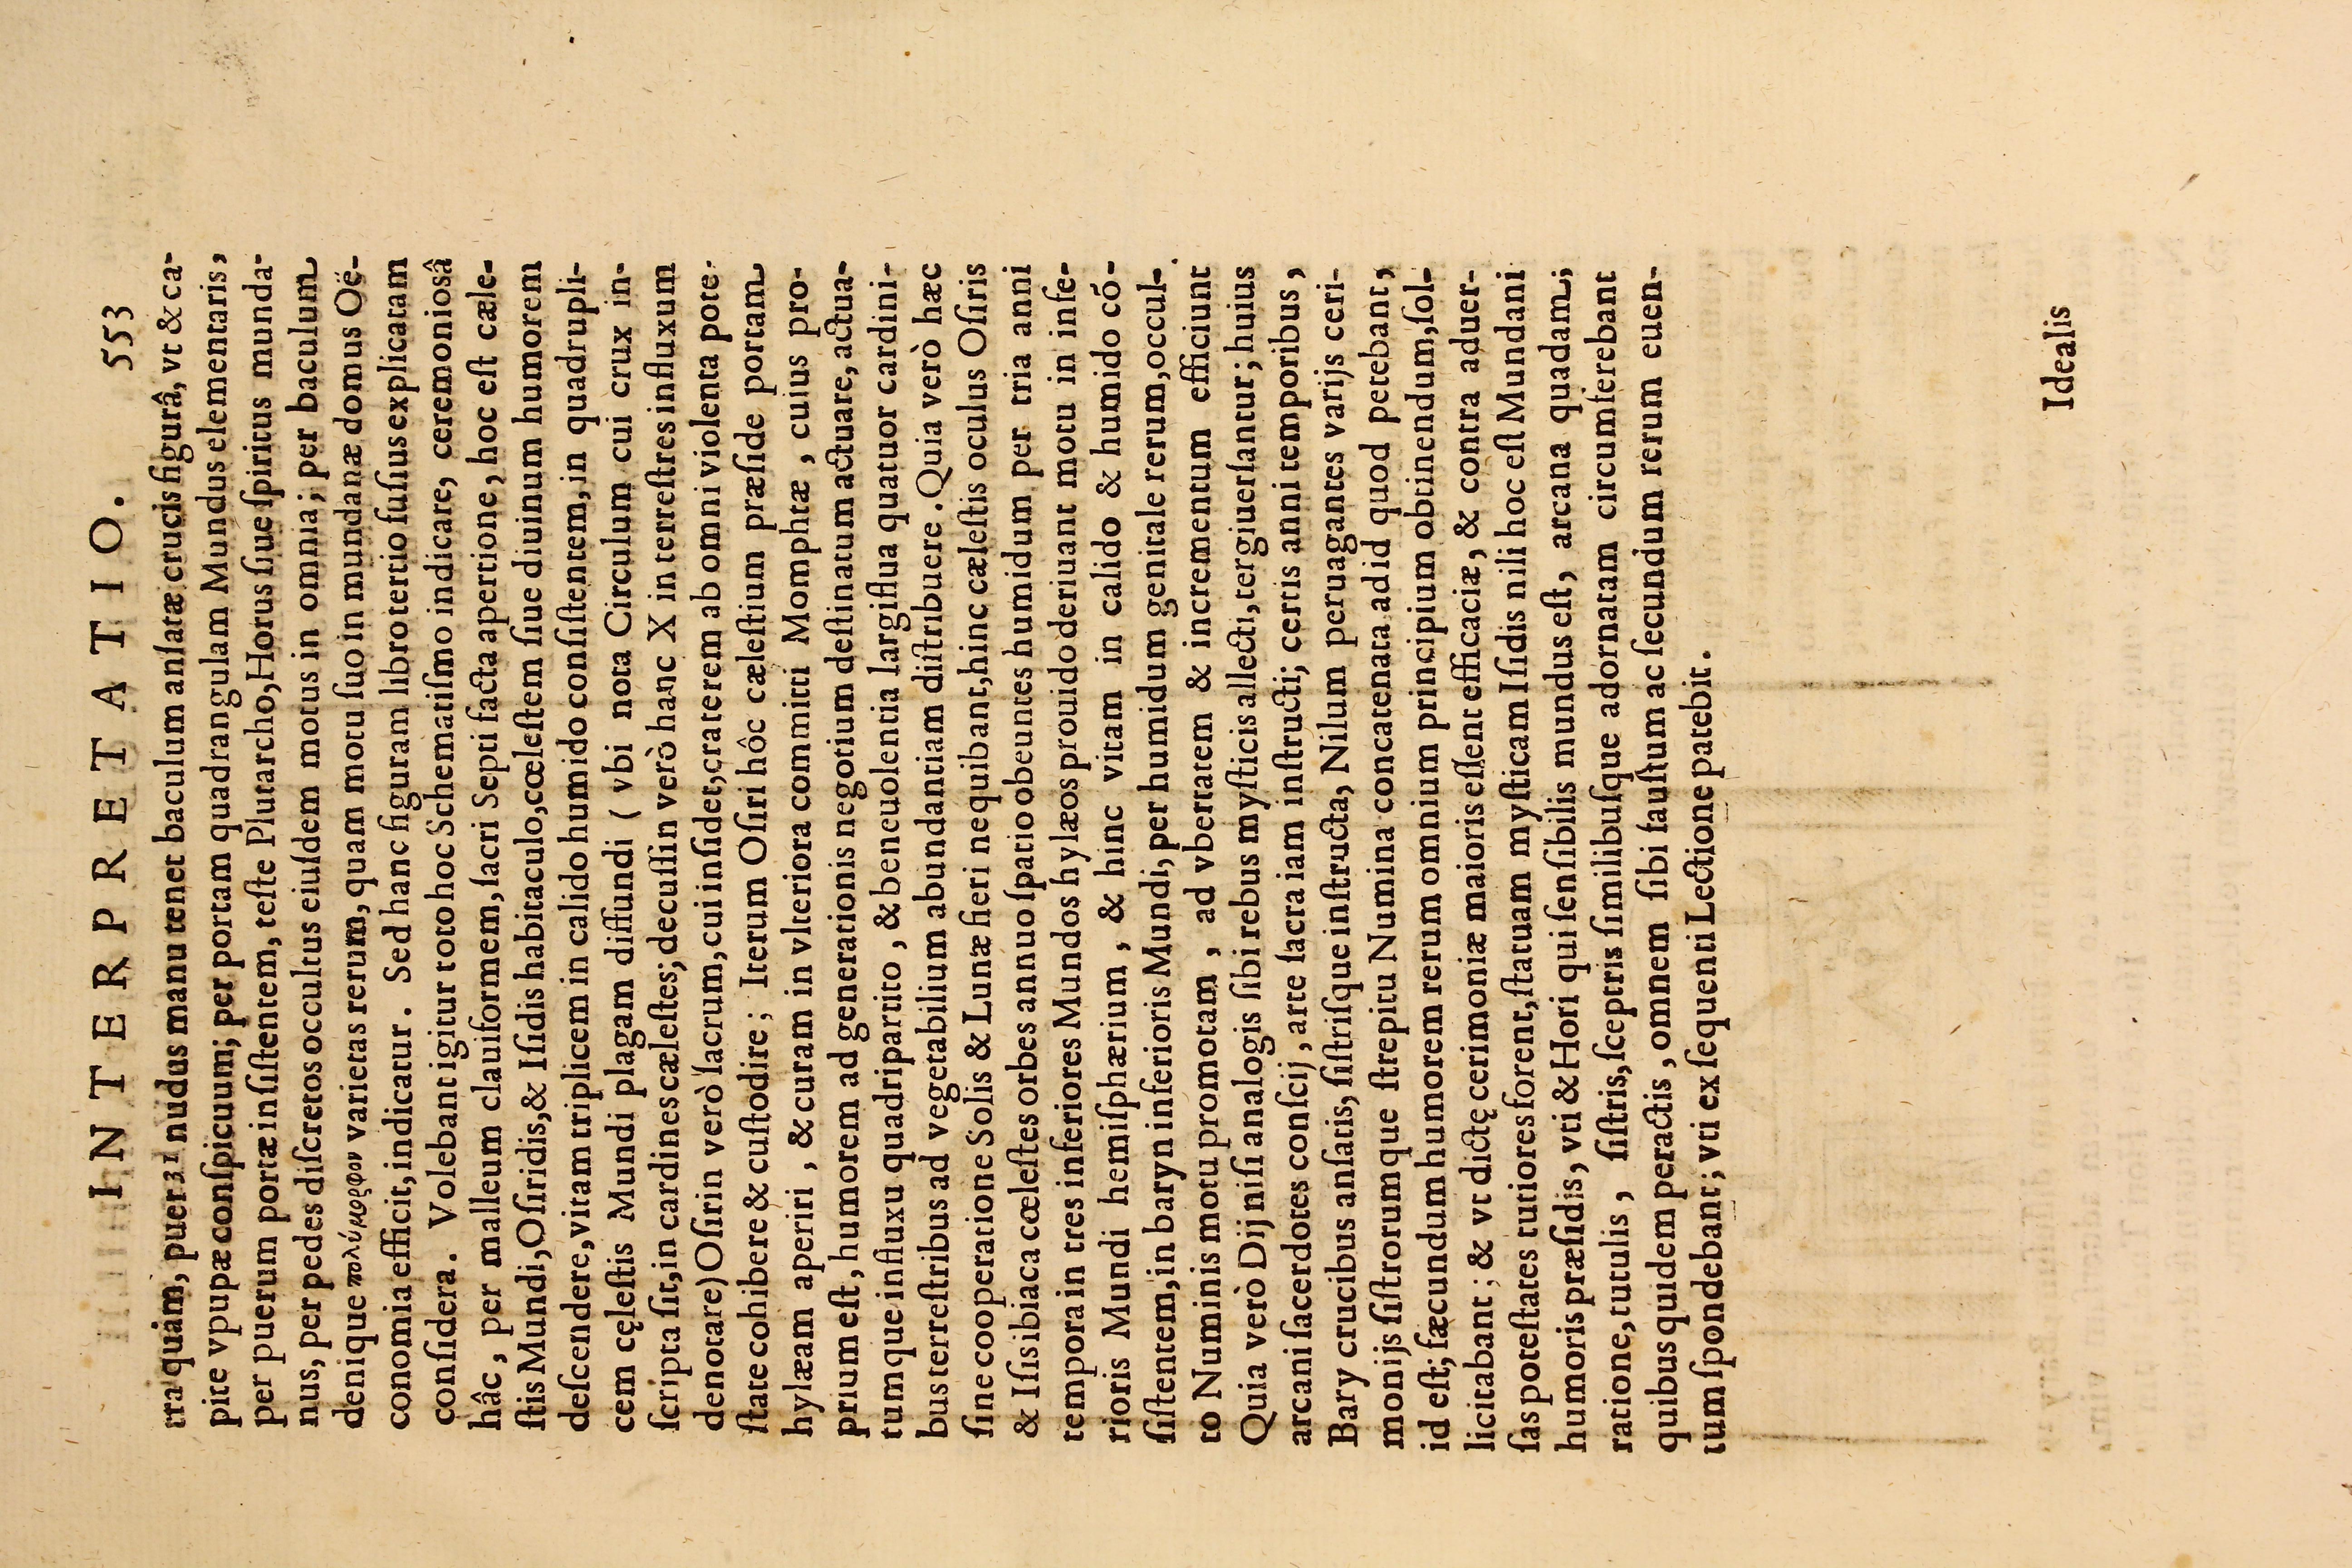 INTERPRETATIO. 553
tra quam, puer 31 nudus manu tenet baculum anſatæ crucis figurâ, vt & ca-
pite vpupæ conſpicuum; per portam quadrangulam Mundus elementaris,
per puerum portæ inſiſtentem, teſte Plutarcho, Horus ſiue ſpiritus munda-
nus, per pedes diſcretos occultus eiuſdem motus in omnia; per baculum
denique πολύμορφον varietas rerum, quam motu ſuo in mundanæ domus Oë-
conomia efficit, indicatur. Sed hanc figuram libro tertio fuſius explicatam
conſidera. Volebant igitur toto hoc Schematiſmo indicare, ceremoniosâ
hâc, per malleum clauiformem, ſacri Septi facta apertione, hoc eſt cæle-
ſtis Mundi, Oſiridis, & Iſidis habitaculo, cœleſtem ſiue diuinum humorem
deſcendere, vitam triplicem in calido humido conſiſtentem, in quadrupli-
cem cęleſtis Mundi plagam diffundi (vbi nota Circulum cui crux in-
ſcripta ſit, in cardines cæleſtes; decuſſin verò hanc X in terreſtres influxum
denotare) Oſirin verò ſacrum, cui inſidet, craterem ab omni violenta pote-
ſtate cohibere & cuſtodire; Iterum Oſiri hôc cæleſtium præſide portam
hylæam aperiri, & curam in vlteriora committi Momphtæ, cuius pro-
prium eſt, humorem ad generationis negotium deſtinatum actuare, actua-
tumque influxu quadripartito, & beneuolentia largiflua quatuor cardini-
bus terreſtribus ad vegetabilium abundantiam diſtribuere. Quia verò hæc
ſine cooperatione Solis & Lunæ fieri nequibant, hinc cæleſtis oculus Oſiris
& Iſis ibiaca cœleſtes orbes annuo ſpatio obeuntes humidum per tria anni
tempora in tres inferiores Mundos hylæos prouido deriuant motu in infe-
rioris Mundi hemiſphærium, & hinc vitam in calido & humido có-
ſiſtentem, in baryn inferioris Mundi, per humidum genitale rerum, occul-
to Numinis motu promotam, ad vbertatem & incrementum efficiunt
Quia verò Dij niſi analogis ſibi rebus myſticis allecti, tergiuerſantur; huius
arcani ſacerdotes conſcij, arte ſacra iam inſtructi; certis anni temporibus,
Bary crucibus anſatis, ſiſtriſque inſtructa, Nilum peruagantes varijs ceri-
monijs ſiſtrorumque ſtrepitu Numina concatenata ad id quod petebant,
id eſt; fæcundum humorem rerum omnium principium obtinendum, ſol-
licitabant; & vt dictę cerimoniæ maioris eſſent efficaciæ, & contra aduer-
ſas poteſtates tutiores forent, ſtatuam myſticam Iſidis nili hoc eſt Mundani
humoris præſidis, vti & Hori qui ſenſibilis mundus eſt, arcana quadam,
ratione, tutulis, ſiſtris, ſceptris ſimilibuſque adornatam circumferebant
quibus quidem peractis, omnem ſibi fauſtum ac ſecundum rerum euen-
tum ſpondebant; vti ex ſequenti Lectione patebit.
Idealis